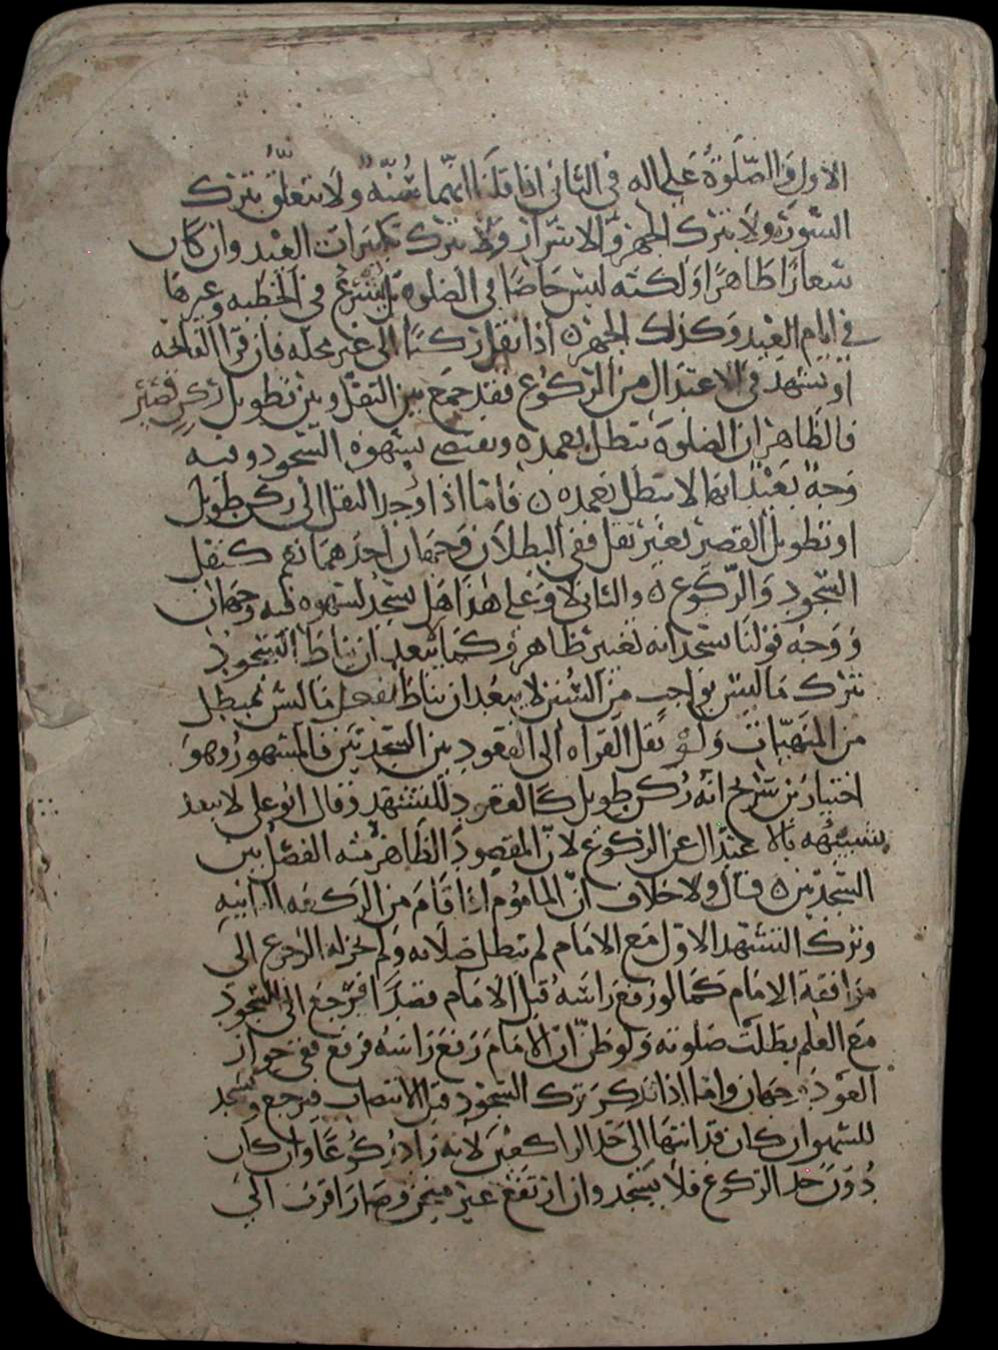 الاول والصلوة على اله في الثاني اذا قلنا انهما سنة ولا يتعلق بترك
السورة ولا بترك الجهر والاسرار ولا بترك تكبيرات العيد وان كان
شعارا ظاهرا ولكنه ليس خاصا في الصلوة بل يشرع في الخطبه وغيرها
في ايام العيد وكذلك الجهر ه اذا نقل ركنا الى غير محله فان قرا الفاتحه
او تشهد في الاعتدال من الركوع فقد جمع بين النقل وبين تطويل ركن قصير
فالظاهر ان الصلوة تبطل بعمده ويقتضي بسهوه السجود وفيه
وجه بعيد انها لا تبطل بعمده ه فاما اذا وجد النقل الى ركن طويل
او تطويل القصير بغير نقل ففي البطلان وجهان احدهما نعم كنقل
السجود والركوع ه والثاني لا وعلى هذا هل يسجد لسهوه فيه وجهان
ووجه قولنا يسجد انه تغيير ظاهر وكما يبعد ان يناط السجود
بترك ما ليس بواجب من السنن لا يبعد ان يناط بفعل ما ليس بمبطل
من المنهيات ولو نقل القراه الى القعود بين السجدتين فالمشهور وهو
اختيار بن سريج انه ركن طويل كالقعود للتشهد وقال ابو علي لا يبعد
تشبيهه بالاعتدال عن الركوع لان المقصود الظاهر منه الفصل بين
السجدتين ه قال ولا خلاف ان الماموم اذا قام من الركعه الثانيه
وترك التشهد الاول مع الامام لم تبطل صلاته ولم يجز له الرجوع الى
موافقة الامام كما لو رفع راسه قبل الامام قصدا فرجع الى السجود
مع العلم بطلت صلوته ولو ظن ان الامام رفع راسه فرفع ففي جواز
العود وجهان واما اذا تذكر ترك السجود قبل الانتصاب فيرجع ويسجد
للسهو ان كان قد انتها الى حد الراكعين لانه زاد ركوعا وان كان
دون حد الركوع فلا يسجد وان ارتفع غير منحن وصار اقرب الى